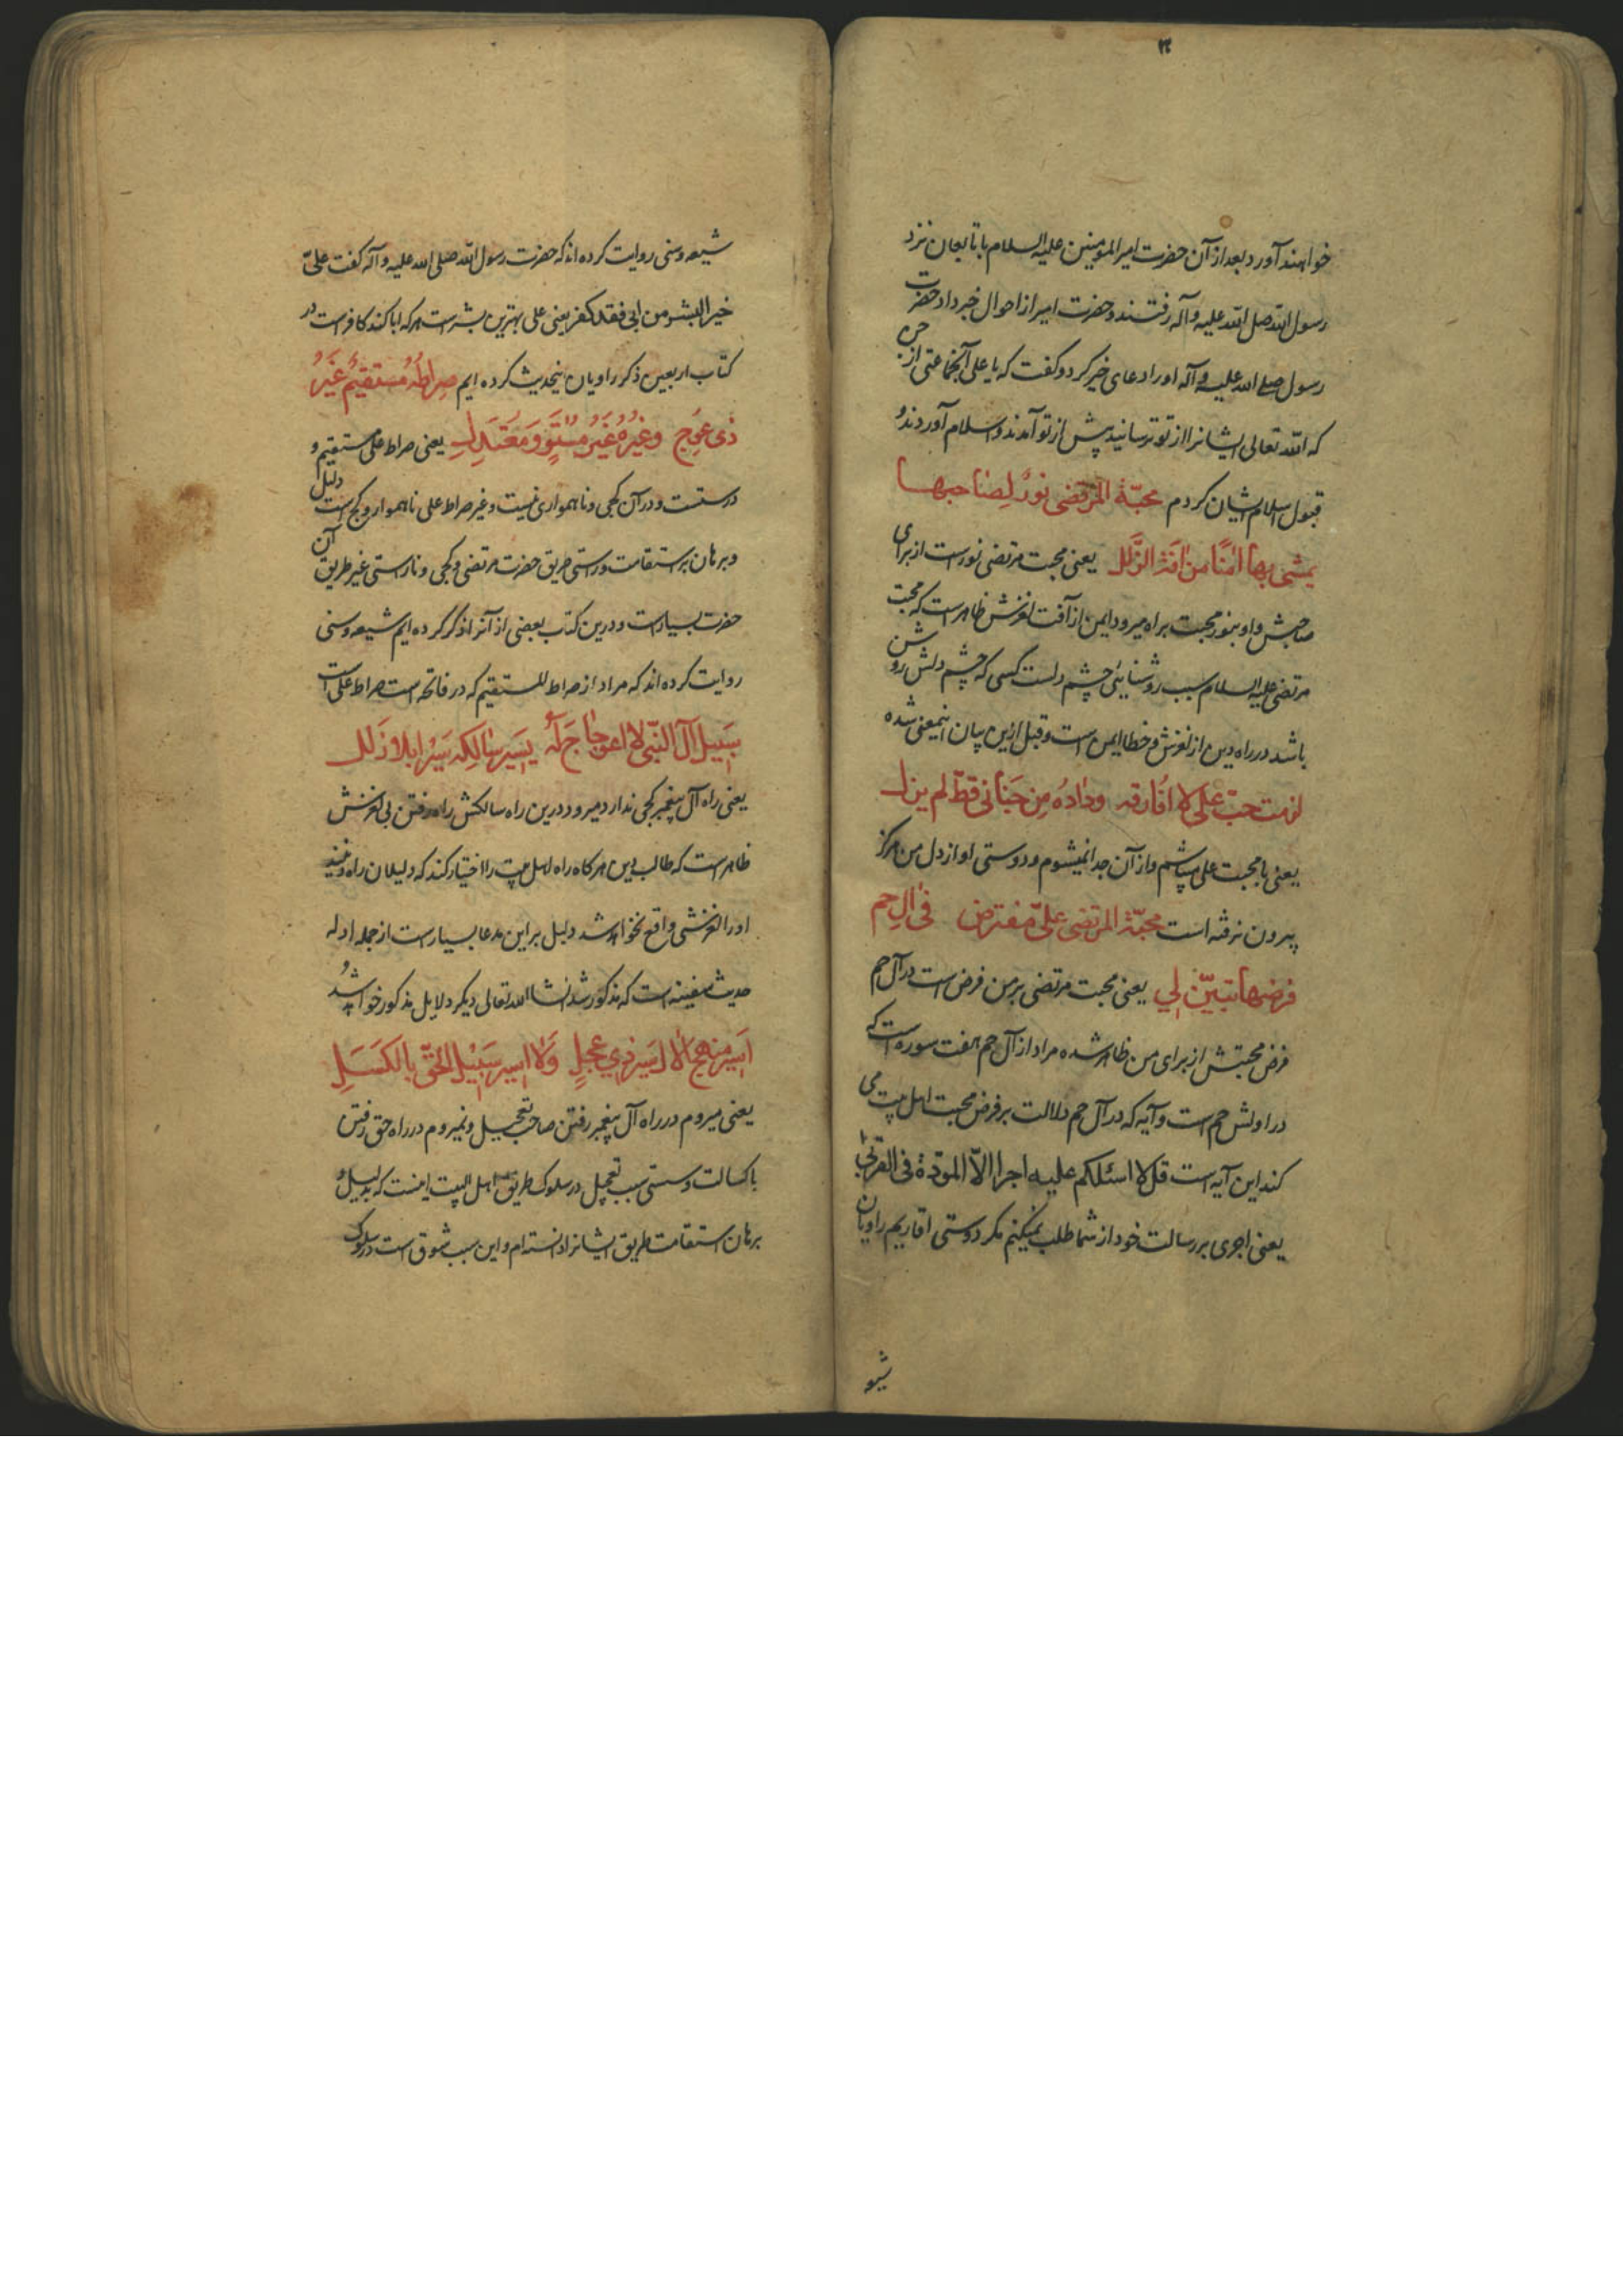 خواهند آورد بعد از آن حضرت امیر المومنین علیه السلام با تابعان نزد
رسول الله صلی الله علیه وآله رفتند و حضرت امیر از احوال خبر داد حضرت
رسول صلی الله علیه وآله او را دعای خیر کرد و گفت که یا علی آنجماعتی از جن
که الله تعالی ایشانرا از تو ترسانید پیش از تو آمدند و اسلام آوردند و
قبول اسلام ایشان کردم محبّة المرتضی نورٌ لِصاحبها
یمشی بها امنًا من افة الزَّلل یعنی محبت مرتضی نورست از برای
صاحبش و او بنور محبت براه میرود ایمن از آفت لغزش ظاهرست که محبت
مرتضی علیه السلام سبب روشنایی چشم دلست کسی که چشم دلش روشن
باشد در راه دین از لغزش و خطا ایمن است و قبل ازین بیان اینمعنی شده
لزمت حبّ علی لا افارقه ودادُه مِن جَنانی قطّ لم یزل
یعنی با محبت علی میباشم و از آن جدا نمیشوم و دوستی او از دل من هرگز
بیرون نرفته است محبّة المرتضی علیّ مفترض فی ال حم
فرضها تبیّن لی یعنی محبت مرتضی بر من فرض است در آل حم
فرض محبتش از برای من ظاهر شده مراد از آل حم هفت سوره است که
در اولش حم است و آیه که در آل حم دلالت بر فرض محبت اهل بیت می
کند این آیه است قل لا اسئلکم علیه اجرا الّا المودّة فی القربی
یعنی اجری بر رسالت خود از شما طلب نمیکنم مگر دوستی اقاربم راویان
شیعه
شیعه و سنی روایت کرده اند که حضرت رسول الله صلی الله علیه وآله گفت علیّ
خیر البشر من ابی فقد کفر یعنی علی بهترین بشر است هر که ابا کند کافر است در
کتاب اربعین ذکر راویان اینحدیث کرده ایم صِراطُه مستقیمٌ غَیرُ
ذی عِوَج وغیرُه غَیرُ مستوٍ وَمُعتَدِل یعنی صراط علی مستقیم و
درستست و در آن کجی و ناهمواری نیست و غیر صراط علی ناهموار و کج است دلیل
و برهان بر استقامت و راستی طریق حضرت مرتضی و کجی و ناراستی غیر طریق آن
حضرت بسیارست و درین کتاب بعضی از آنرا ذکر کرده ایم شیعه و سنی
روایت کرده اند که مراد از صراط المستقیم که در فاتحه است صراط علی است
سَبیل آل النّبی لا اعوجاجَ لَه یَسیر سالِکه سَیرًا بلا زلل
یعنی راه آل پیغمبر کجی ندارد میرود درین راه سالکش راه رفتن بی لغزش
ظاهرست که طالب دین هرگاه راه اهل بیت را اختیار کند که دلیلان راه دینند
او را لغزشی واقع نخواهد شد دلیل بر این مدعا بسیارست از جمله ادله
حدیث سفینه است که مذکور شد انشا الله تعالی دیگر دلایل مذکور خواهد شد و
اَسیر منهجَ الال سَیرَ ذی عجلٍ وَلا اسیر سَبیل الحقّ بالکَسَلِ
یعنی میروم در راه آل پیغمبر رفتن صاحب تعجیل و نمیروم در راه حق رفتن
با کسالت و سستی سبب تعجیل در سلوک طریق اهل البیت اینست که بدلیل و
برهان استقامت طریق ایشانرا دانسته ام و این سبب شوق است در سلوک